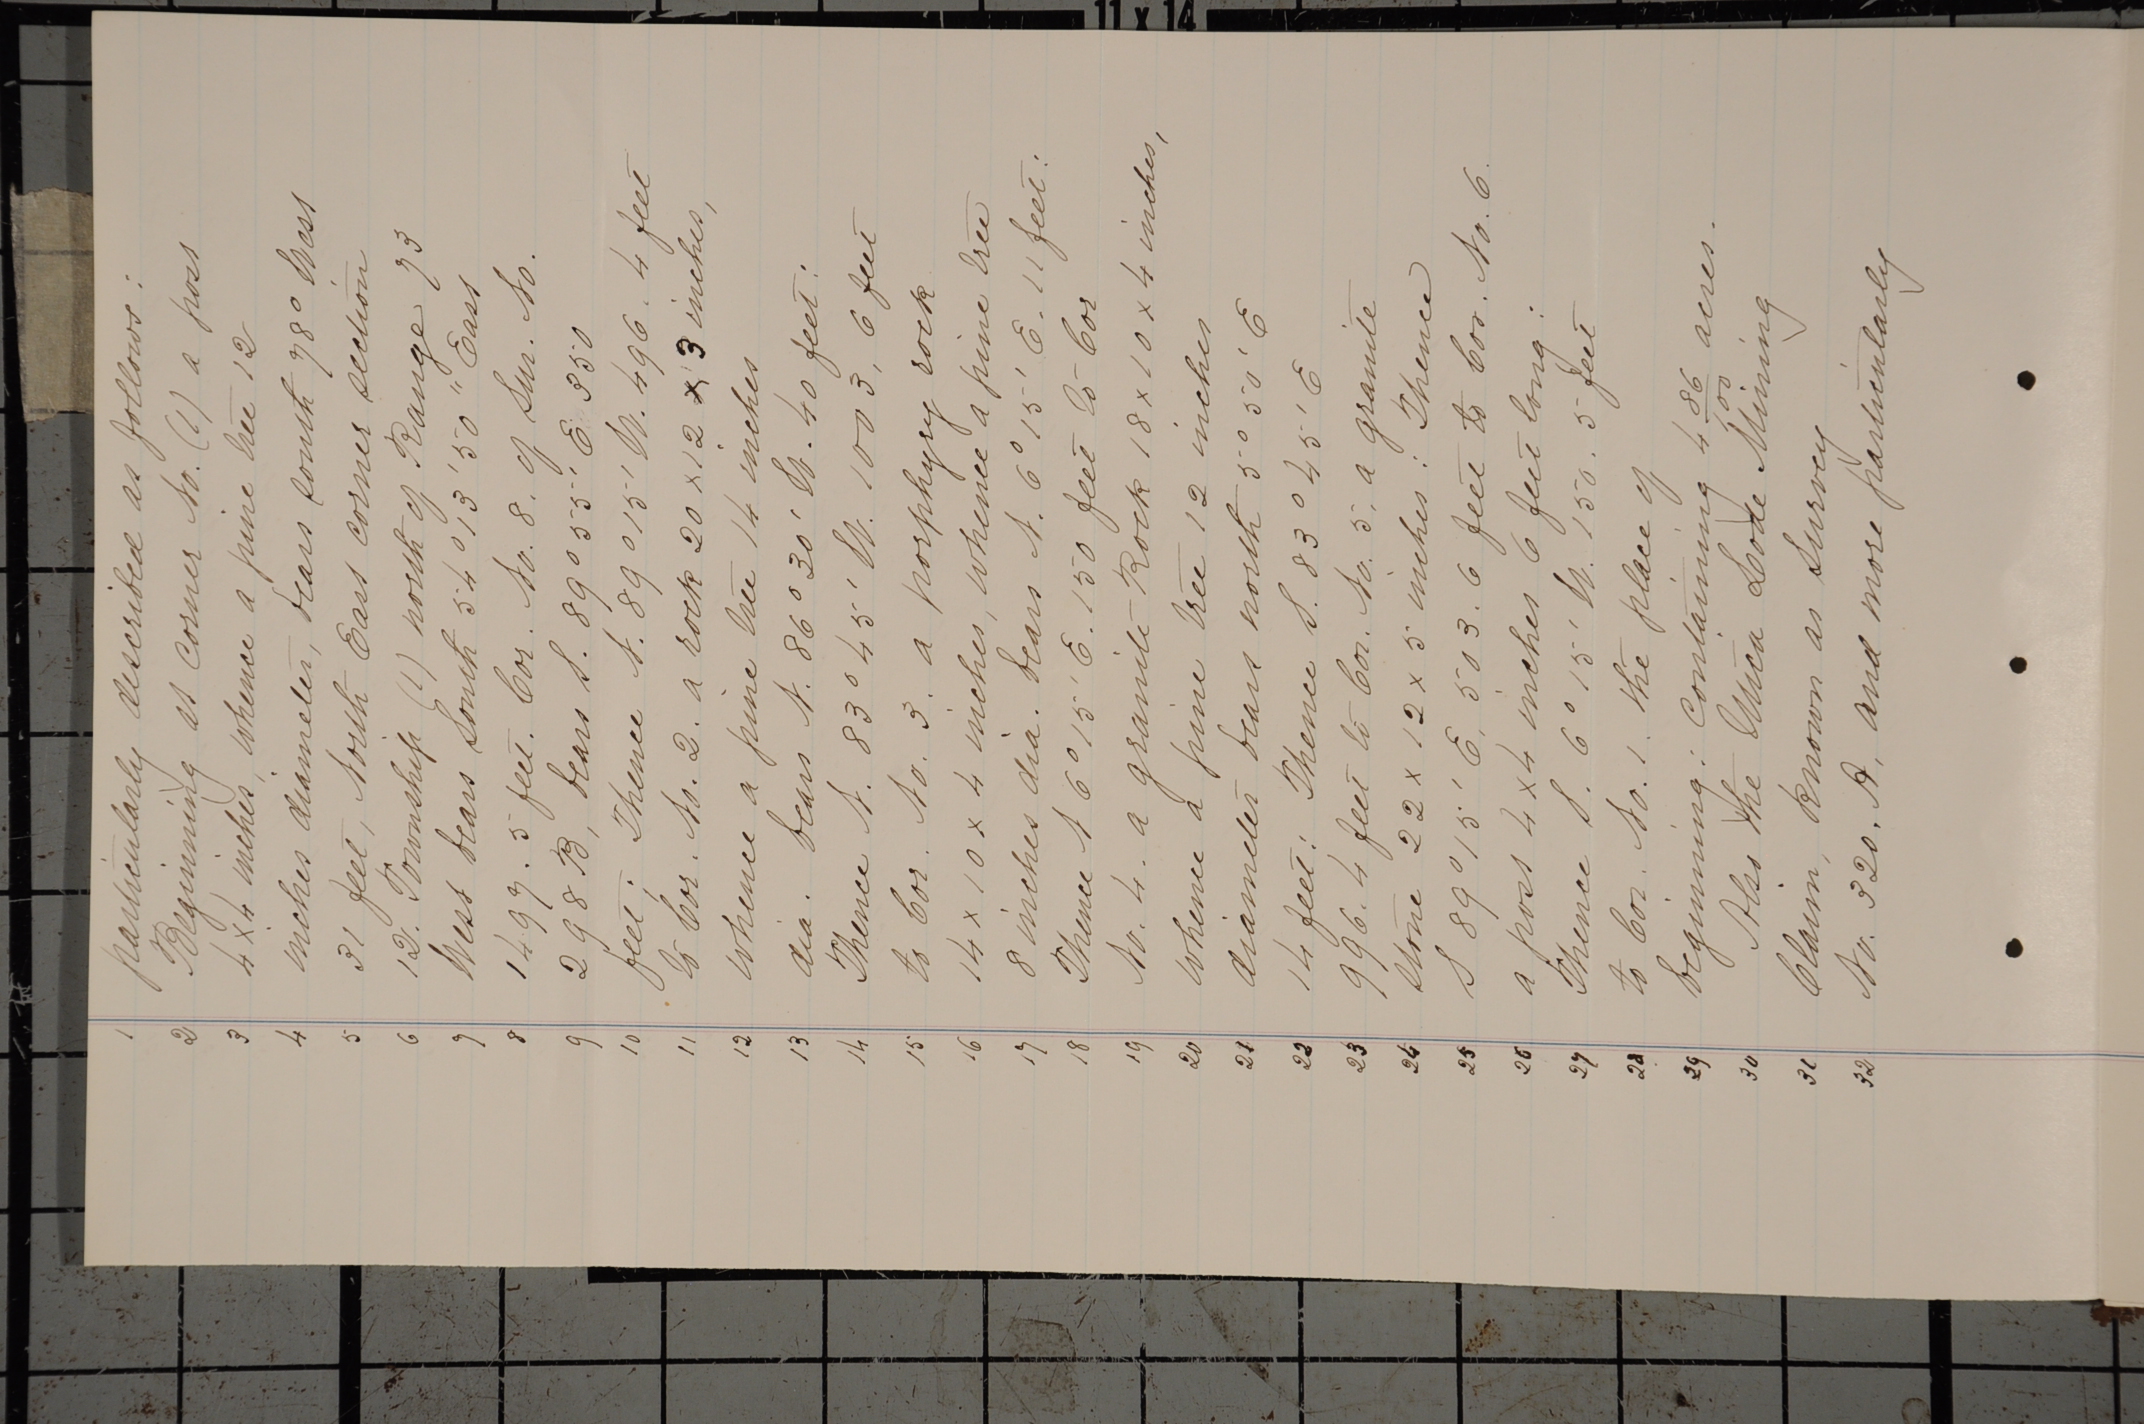 11 x 14
1 particularly described as follows:
2 Beginning at Corner No. (1) a post
3 4x4 inches, whence a pine tree 12
4 inches diameter, bears South 78° West
5 31 feet, North East corner section
6 12. Township (1) north of Range 73
7 West bears South 54° 13' 50" East
8 1497.5 feet. Cor. No. 8. of Sur. No.
9 298 B, bears S. 89° 55' E 350
10 feet: Thence N. 89° 15' W. 496.4 feet
11 to Cor. No. 2. a rock 20 x 12 x 3 inches,
12 whence a pine tree 14 inches
13 dia. bears N. 86° 30' W. 40 feet:
14 Thence N. 83° 45' W. 1003.6 feet
15 to Cor. No. 3. a porphyry rock
16 14 x 10 x 4 inches, whence a pine tree
17 8 inches dia. bears N. 6° 15' E. 11 feet:
18 Thence N 6° 15' E. 150 feet to Cor
19 No. 4. a granite Rock 18 x 10 x 4 inches,
20 whence a pine tree 12 inches
21 diameter bears north 5° 50' E
22 14 feet: Thence S. 83° 45' E
23 996.4 feet to Cor. No. 5, a granite
24 stone 22 x 12 x 5 inches: Thence
25 S 89° 15' E. 503.6 feet to Cor. No. 6.
26 a post 4x4 inches 6 feet long:
27 Thence S. 6° 15' W. 150.5 feet
28 to Cor. No. 1. the place of
29 beginning: Containing 4 86/100 acres.
30 Also the Utica Lode Mining
31 Claim, known as Survey
32 No. 320. A, and more particularly